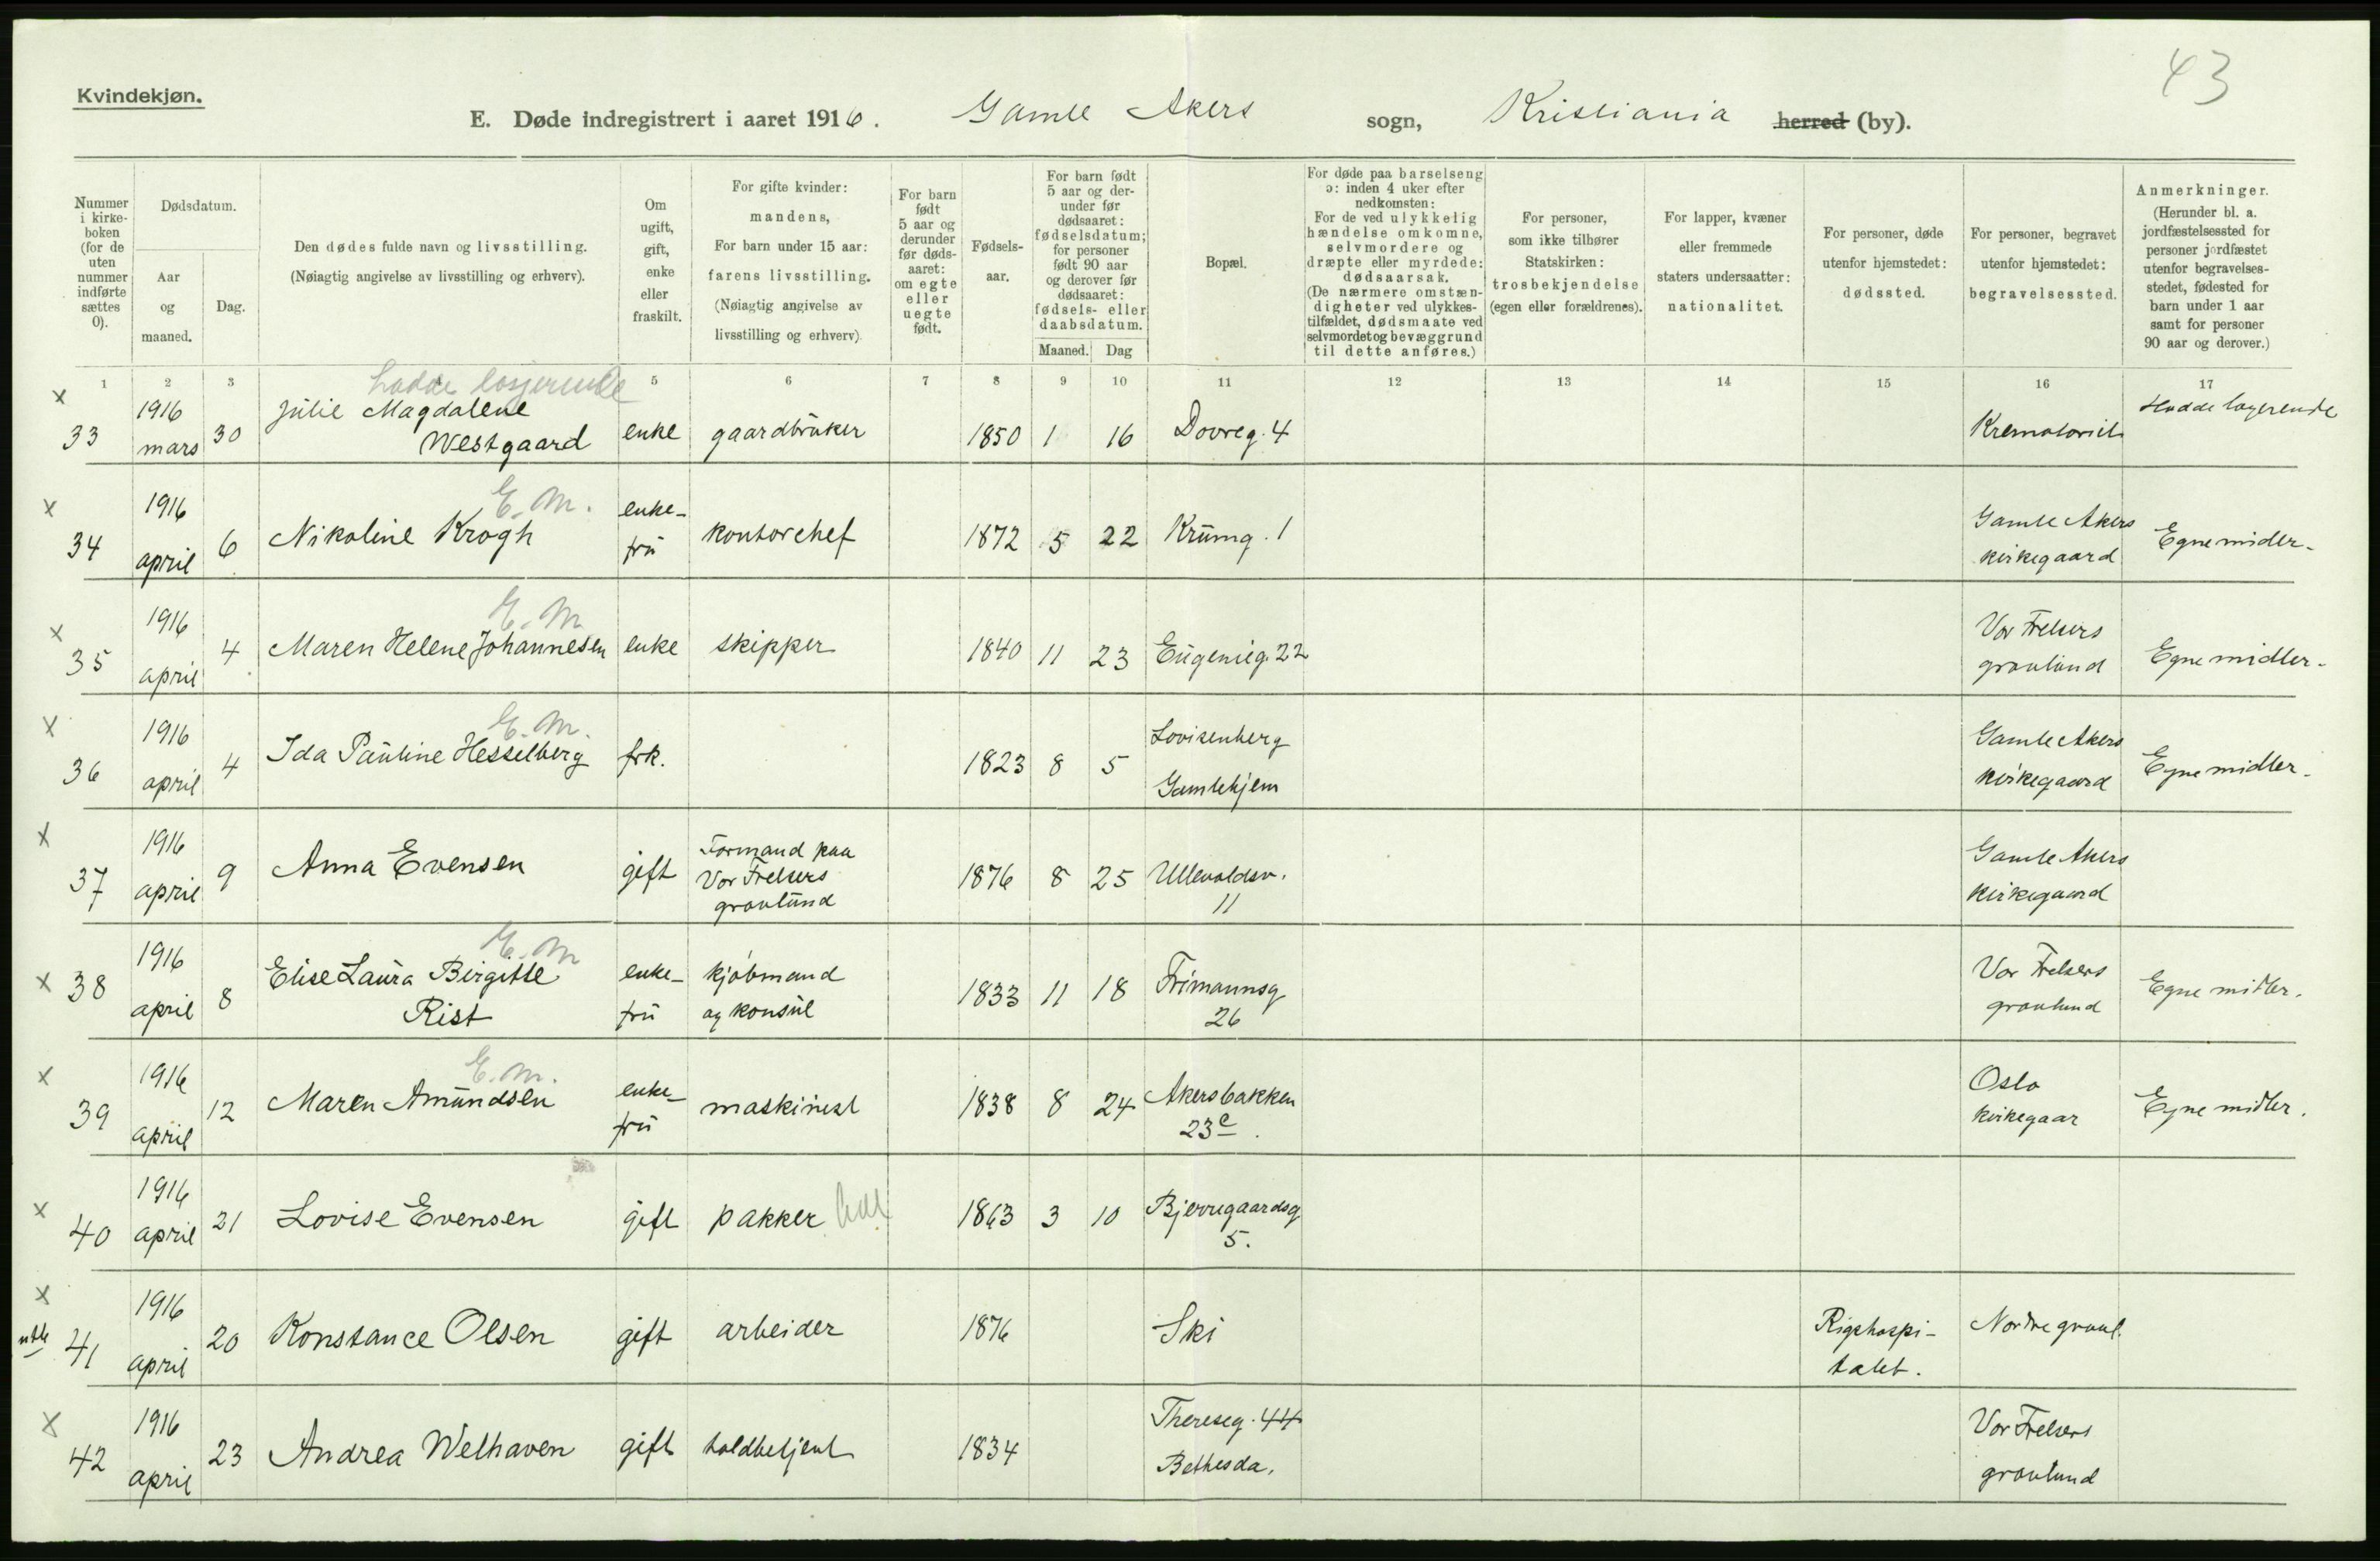 43
Kvindekjøn.
E. Døde indregistrert i aaret 1916. Gamle Akers sogn, Kristiania herred (by).
Nummer i kirke-boken (for de uten nummer indførte sættes 0).
Dødsdatum.
Aar og maaned.
Dag.
Den dødes fulde navn og livsstilling.
(Nøiagtig angivelse av livsstilling og erhverv).
Om ugift, gift, enke eller fraskilt.
For gifte kvinder: mandens, For barn under 15 aar: farens livsstilling. (Nøiagtig angivelse av livsstilling og erhverv)
For barn født 5 aar og derunder før døds-aaret: om egte eller uegte født.
Fødsels-aar.
For barn født 5 aar og der-under før dødsaaret: fødselsdatum; for personer født 90 aar og derover før dødsaaret: fødsels- eller daabsdatum.
Maaned. Dag
Bopæl.
For døde paa barselseng ɔ: inden 4 uker efter nedkomsten: For de ved ulykkelig hændelse omkomne, selvmordere og dræpte eller myrdede: dødsaarsak. (De nærmere omstæn-digheter ved ulykkes-tilfældet, dødsmaate ved selvmordet og bevæggrund til dette anføres.)
For personer, som ikke tilhører Statskirken: trosbekjendelse (egen eller forældrenes).
For lapper, kvæner eller fremmede staters undersaatter: nationalitet.
For personer, døde utenfor hjemstedet: dødssted.
For personer, begravet utenfor hjemstedet: begravelsessted.
Anmerkninger. (Herunder bl. a. jordfæstelsessted for personer jordfæstet utenfor begravelses-stedet, fødested for barn under 1 aar samt for personer 90 aar og derover.)
1 2 3 5 6 7 8 9 10 11 12 13 14 15 16 17
hadde losjerende
x 33 1916 mars 30 Julie Magdalene Westgaard enke gaardbruker 1850 1 16 Dovreg. 4 Krematoriet Hadde logerende
E. M.
x 34 1916 april 6 Nikoline Krogh enke-fru kontorchef 1872 5 22 Krumg. 1 Gamle Akers kirkegaard Egne midler.
E. M.
x 35 1916 april 4 Maren Helene Johannesen enke skipper 1840 11 23 Eugenieg. 22 Vor Frelsers gravlund Egne midler.
E. M.
x 36 1916 april 4 Ida Pauline Hesselberg frk. 1823 8 5 Lovisenberg Gamlehjem Gamle Akers kirkegaard Egne midler.
x 37 1916 april 9 Anna Evensen gift Formand paa Vor Frelsers gravlund 1876 8 25 Ullevoldsv. 11 Gamle Akers kirkegaard
E. M
x 38 1916 april 8 Elise Laura Birgitte Rist enke-fru kjøbmand og konsul 1833 11 18 Frimannsg 26 Vor Frelsers gravlund Egne midler.
E. M.
x 39 1916 april 12 Maren Amundsen enke-fru maskinist 1838 8 24 Akersbakken 23c. Oslo kirkegaar Egne midler.
x 40 1916 april 21 Lovise Evensen gift pakker 1863 3 10 Bjerregaardsg 5.
x 41 1916 april 20 Konstance Olsen gift arbeider 1876 Ski Rigshospi-talet. Nordre gravl.
x 42 1916 april 23 Andrea Welhaven gift toldbetjent 1834 Thereseg. 44 Bethesda. Vor Frelsers gravlund